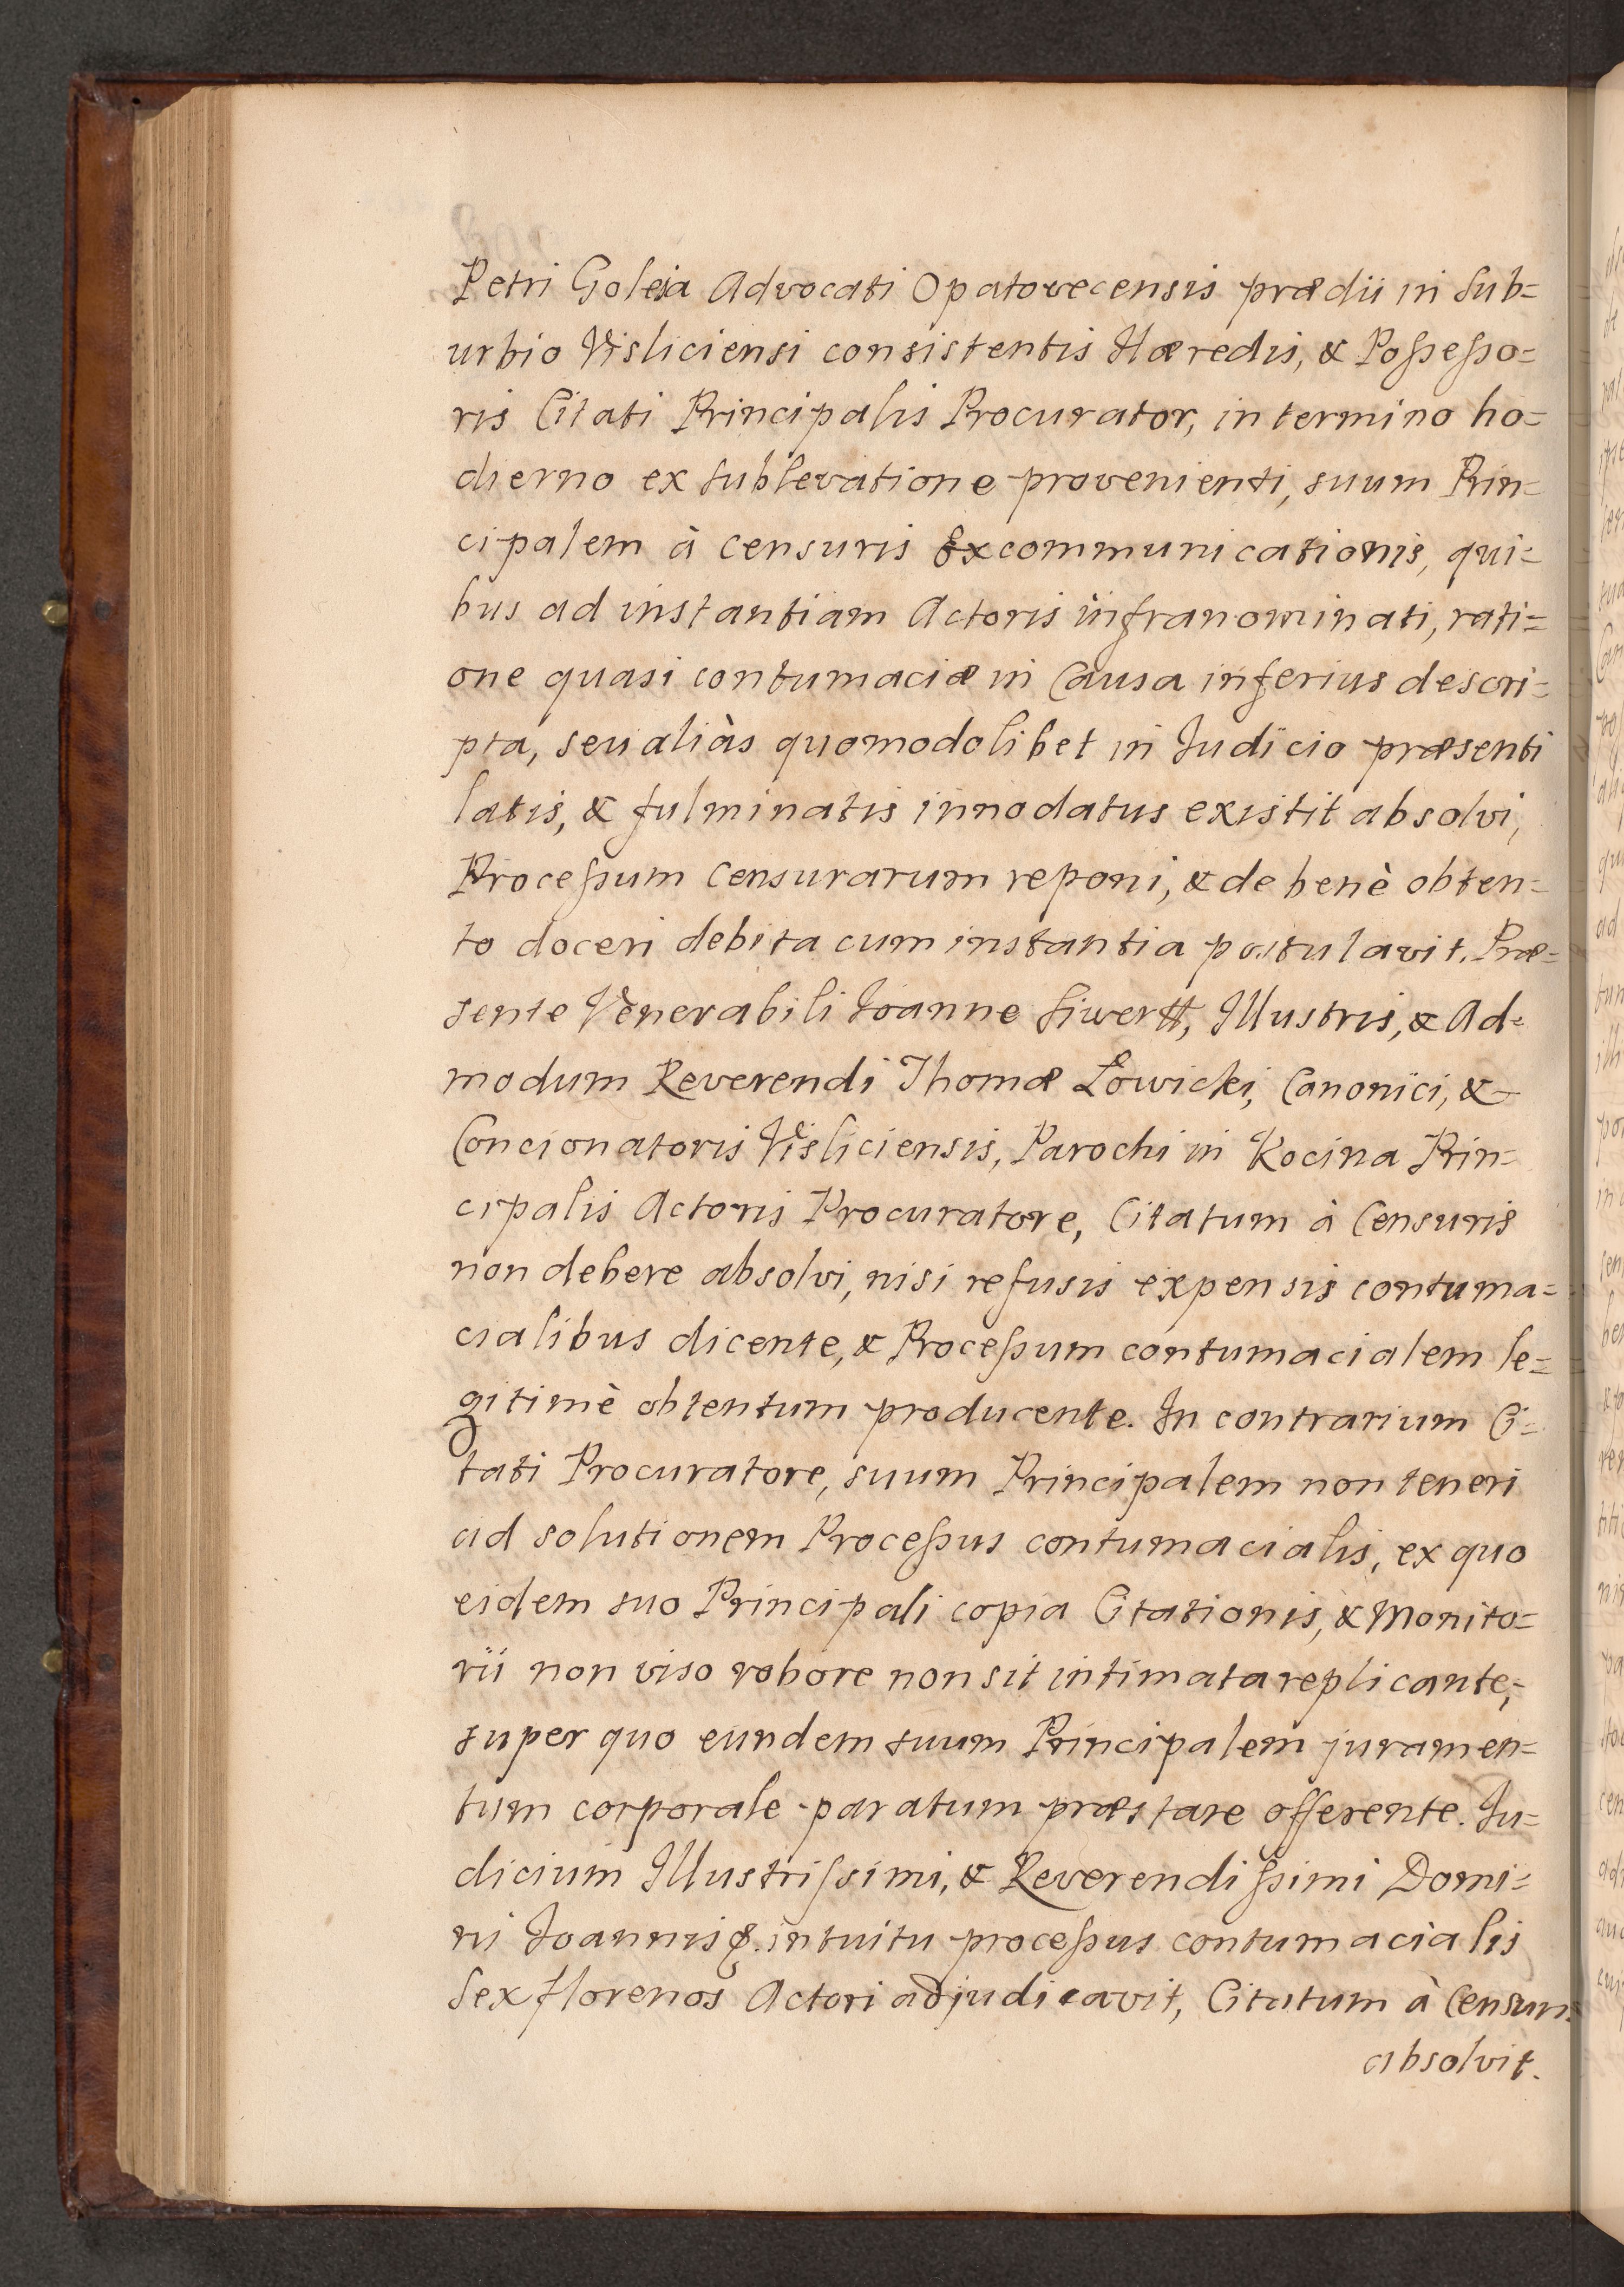 Petri Goleia Advocati Opatovecensis prædii in Sub=
urbio Visliciensi consistentis Hæredis, & Poßeßo=
ris Citati Principalis Procurator, in termino ho=
dierno ex sublevatione provenienti, suum Prin=
cipalem à censuris Excommunicationis, qui=
bus ad instantiam Actoris infranominati, rati=
one quasi contumaciæ in Causa inferius descri=
pta, seu aliàs quomodolibet in Judicio præsenti
latis, & fulminatis innodatus existit absolvi,
Proceßum Censurarum reponi, & de benè obten=
to doceri debita cum instantia postulavit. Præ=
sente Venerabili Joanne Siwertt, Illustris, & Ad=
modum Reverendi Thomæ Łowicki, Canonici, &
Concionatoris Visliciensis, Parochi in Kocina Prin=
cipalis Actoris Procuratore, Citatum à Censuris
non debere absolvi, nisi refusis expensis contuma=
cialibus dicente, & Proceßum contumacialem le=
gitimè obtentum producente. In contrarium Ci=
tati Procuratore, suum Principalem non teneri
ad solutionem Proceßus contumacialis, ex quo
eidem suo Principali copia Citationis, & Monito=
rii non viso robore non sit intimata replicante,
super quo eundem suum Principalem juramen=
tum corporale paratum præstare offerente. Ju=
dicium Illustrissimi, & Reverendißimi Domi=
ni Joannis &. intuitu proceßus contumacialis
Sex florenos Actori adjudicavit, Citatum à Censuris
absolvit.